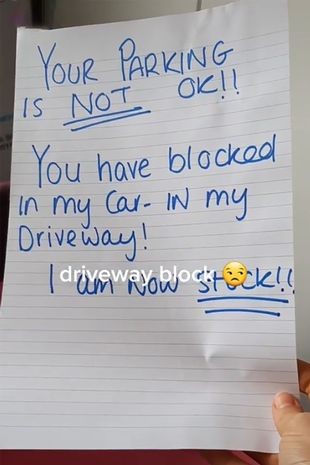 YOUR PARKING
IS NOT OK!!
You have blocked
in my Car- IN my
Driveway!
driveway block 😒
I am Now STUCK!!